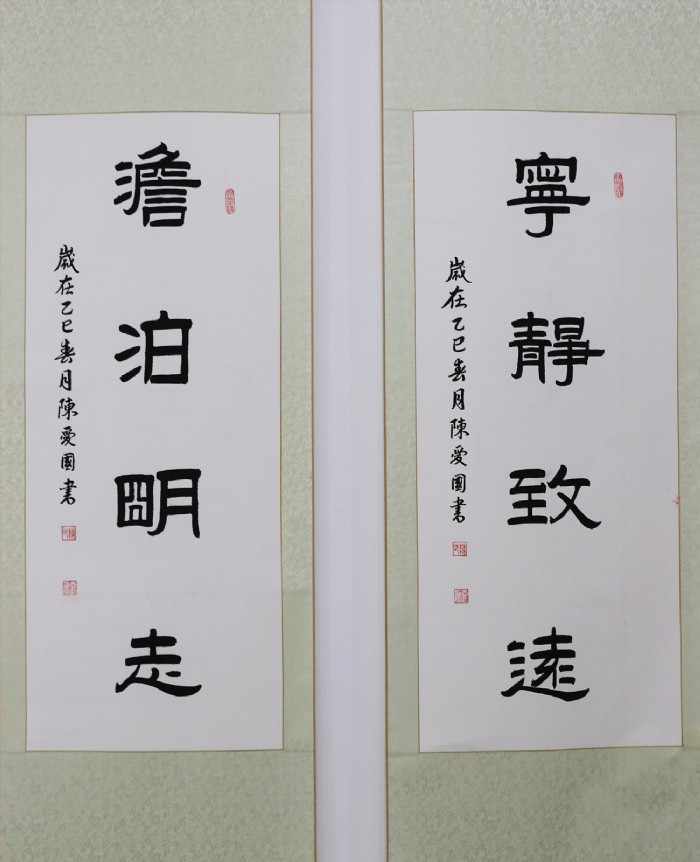 寧靜致遠
歲在乙巳春月陳愛國書
澹泊明志
歲在乙巳春月陳愛國書